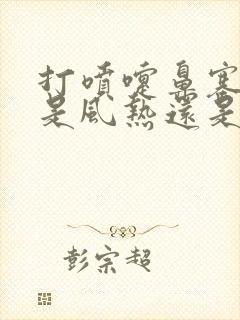 打噴嚏鼻塞
是風熱還是
彭宗超